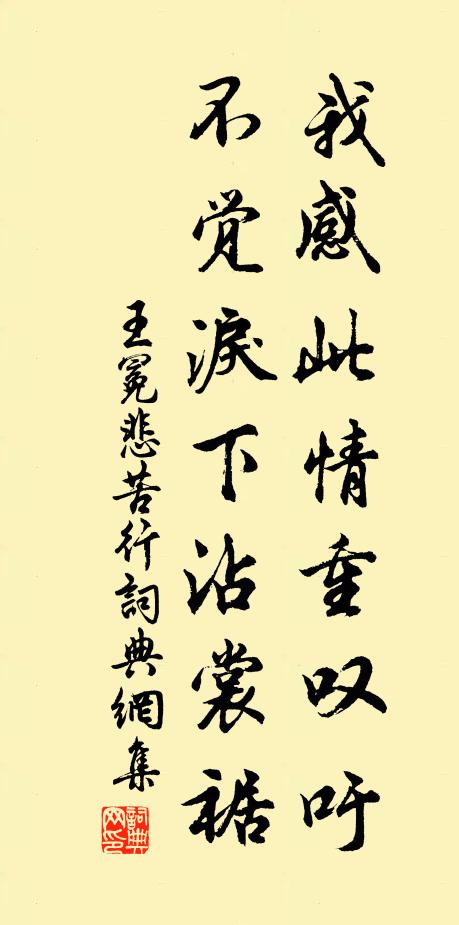 我感此情重叹吁
不觉淚下沾裳裾
王冕悲苦行詞典網集
詞典网印